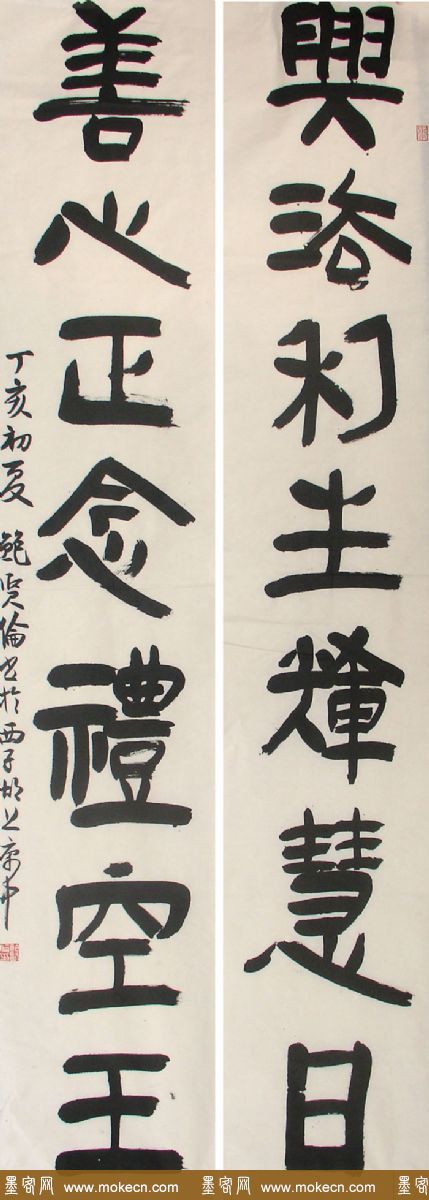 興洽利生輝慧日
善心正念禮空王
丁亥初夏 鮑贤倫书於西子湖上
墨客网 www.mokecn.com 墨客网 www.mokecn.com 墨客网